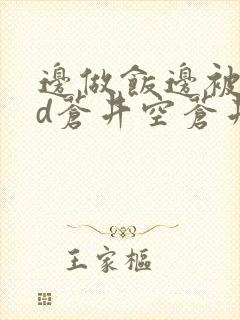 邊做飯邊被
d蒼井空蒼井
王家樞